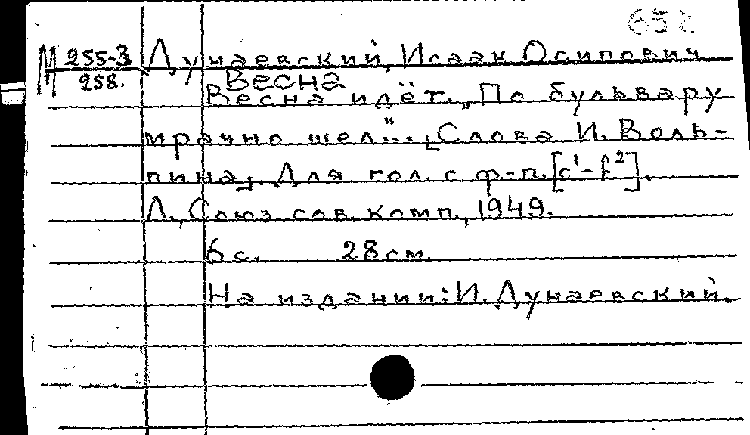 652
М 255-3 Дунаевский, Исаак Осипович
258. Весна
Весна идёт. "По бульвару
мрачно шел"... [Слова И. Воль-
пина]. Для гол. с ф-п. [c¹-f²].
Л., Союз сов. комп., 1949.
6 с. 28 см.
На издании: И. Дунаевский.